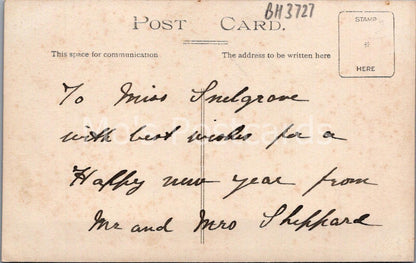 BH3727
POST CARD.
STAMP
HERE
This space for communication
The address to be written here
To Miss Snelgrove
with best wishes for a
Happy new year from
Mr and Mrs Sheppard